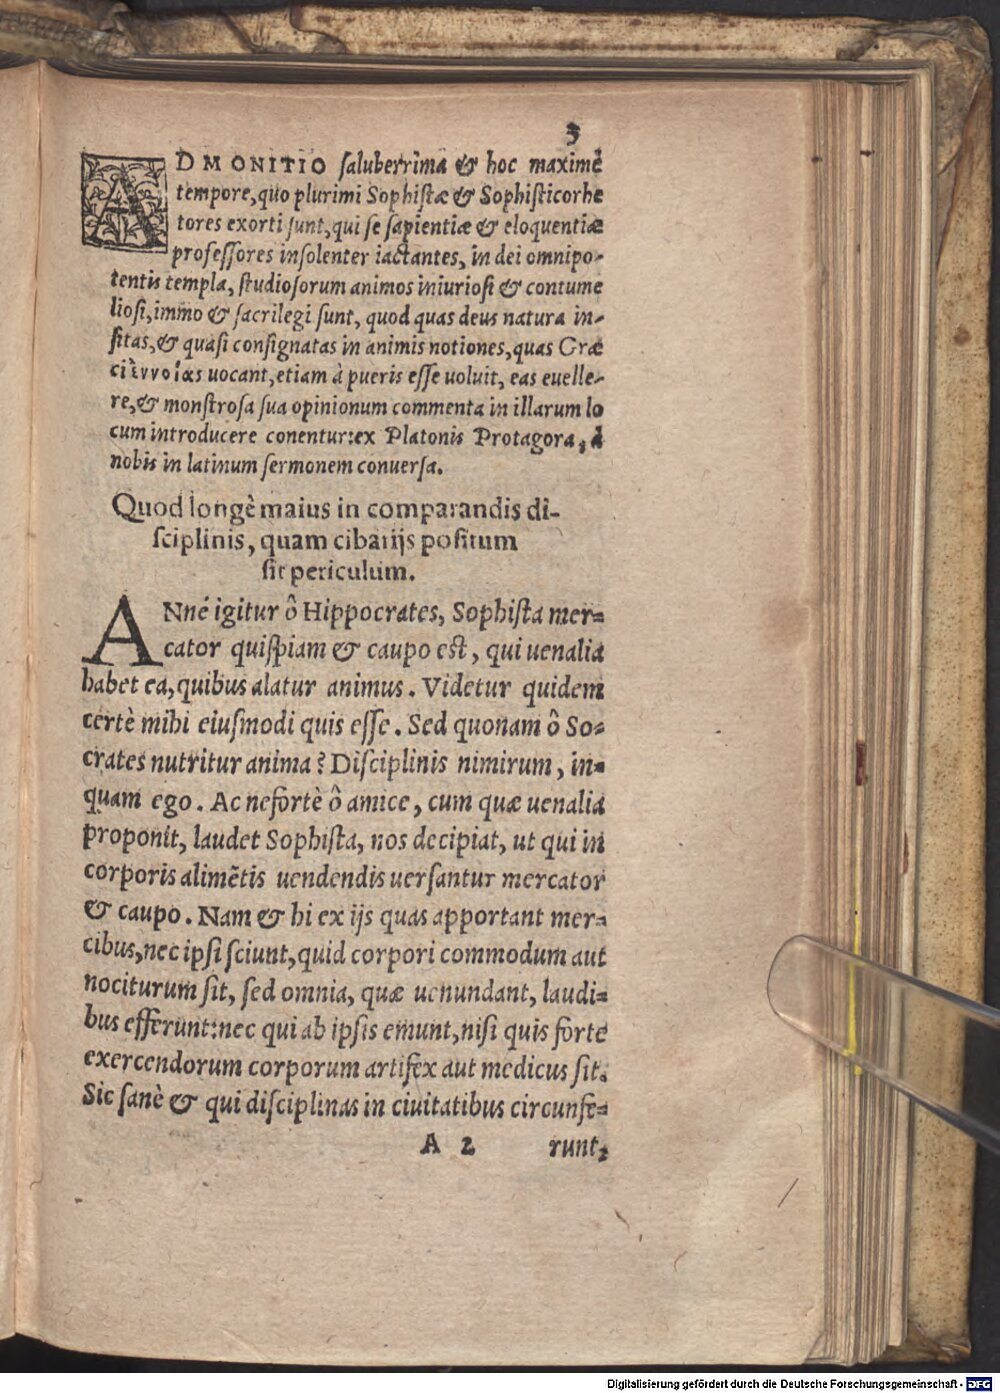 3
ADMONITIO saluberrima & hoc maximè
tempore, quo plurimi Sophistæ & Sophisticorhe
tores exorti sunt, qui se sapientiæ & eloquentiæ
professores insolenter iactantes, in dei omnipo-
tentis templa, studiosorum animos iniuriosi & contume
liosi, immo & sacrilegi sunt, quod quas deus natura in-
sitas, & quasi consignatas in animis notiones, quas Græ
ci ἐννοίας uocant, etiam à pueris esse uoluit, eas euelle-
re, & monstrosa sua opinionum commenta in illarum lo
cum introducere conentur: ex Platonis Protagora, à
nobis in latinum sermonem conuersa.
Quod longè maius in comparandis di-
sciplinis, quam cibarijs positum
sit periculum.
ANné igitur ô Hippocrates, Sophista mer=
cator quispiam & caupo est, qui uenalia
habet ea, quibus alatur animus. Videtur quidem
certè mihi eiusmodi quis esse. Sed quonam ô So=
crates nutritur anima? Disciplinis nimirum, in=
quam ego. Ac nefortè ô amice, cum quæ uenalia
proponit, laudet Sophista, nos decipiat, ut qui in
corporis alimẽtis uendendis uersantur mercator
& caupo. Nam & hi ex ijs quas apportant mer=
cibus, nec ipsi sciunt, quid corpori commodum aut
nociturum sit, sed omnia, quæ uenundant, laudi=
bus efferunt: nec qui ab ipsis emunt, nisi quis forte
exercendorum corporum artifex aut medicus sit.
Sic sanè & qui disciplinas in ciuitatibus circunfe=
A 2 runt,
Digitalisierung gefördert durch die Deutsche Forschungsgemeinschaft - DFG